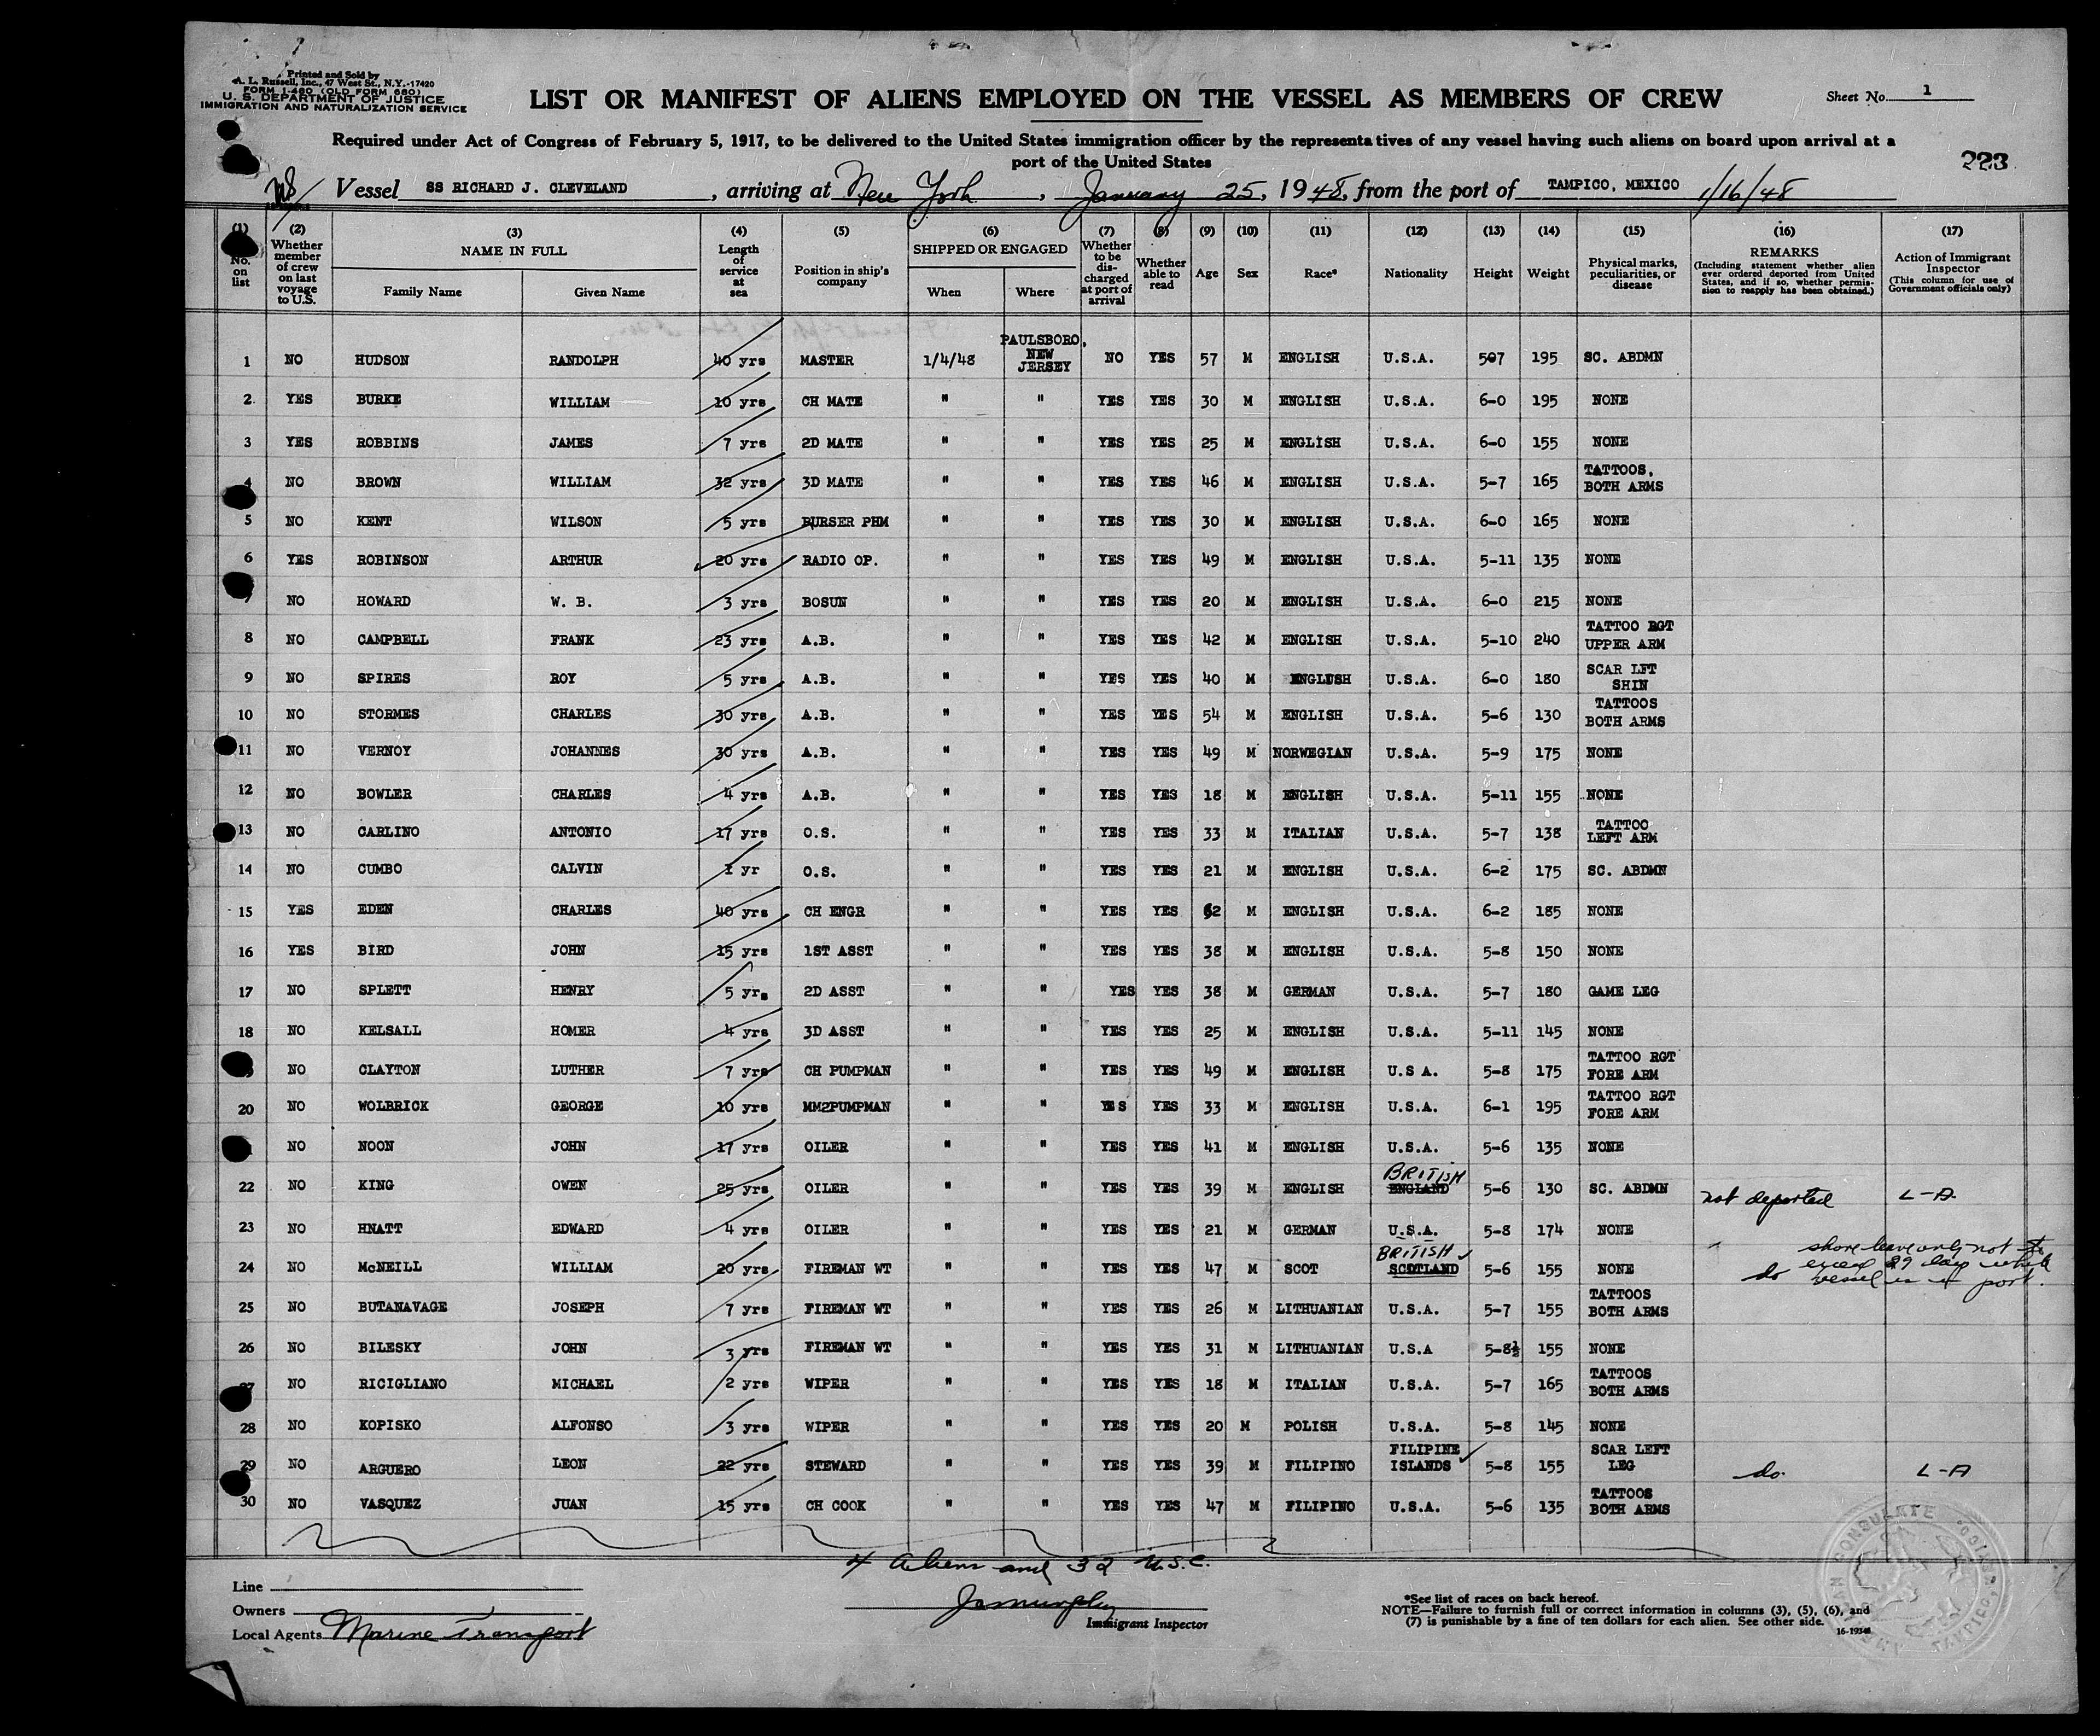 Printed and Sold by
A. L. Russell, Inc., 47 West St., N.Y.-17420
FORM I-480 (OLD FORM 680)
U. S. DEPARTMENT OF JUSTICE
IMMIGRATION AND NATURALIZATION SERVICE
LIST OR MANIFEST OF ALIENS EMPLOYED ON THE VESSEL AS MEMBERS OF CREW
Sheet No. 1
Required under Act of Congress of February 5, 1917, to be delivered to the United States immigration officer by the representatives of any vessel having such aliens on board upon arrival at a
port of the United States
223
Vessel SS RICHARD J. CLEVELAND, arriving at New York, January 25, 1948, from the port of TAMPICO, MEXICO 1/16/48
(1) No. on list
(2) Whether member of crew on last voyage to U.S.
(3) NAME IN FULL Family Name Given Name
(4) Length of service at sea
(5) Position in ship's company
(6) SHIPPED OR ENGAGED When Where
(7) Whether to be discharged at port of arrival
(8) Whether able to read
(9) Age
(10) Sex
(11) Race*
(12) Nationality
(13) Height
(14) Weight
(15) Physical marks, peculiarities, or disease
(16) REMARKS (Including statement whether alien ever ordered deported from United States, and if so, whether permission to reapply has been obtained.)
(17) Action of Immigrant Inspector (This column for use of Government officials only)
1 NO HUDSON RANDOLPH 40 yrs MASTER 1/4/48 PAULSBORO, NEW JERSEY NO YES 57 M ENGLISH U.S.A. 507 195 SC. ABDMN
2 YES BURKE WILLIAM 10 yrs CH MATE " " YES YES 30 M ENGLISH U.S.A. 6-0 195 NONE
3 YES ROBBINS JAMES 7 yrs 2D MATE " " YES YES 25 M ENGLISH U.S.A. 6-0 155 NONE
4 NO BROWN WILLIAM 32 yrs 3D MATE " " YES YES 46 M ENGLISH U.S.A. 5-7 165 TATTOOS, BOTH ARMS
5 NO KENT WILSON 5 yrs PURSER PHM " " YES YES 30 M ENGLISH U.S.A. 6-0 165 NONE
6 YES ROBINSON ARTHUR 20 yrs RADIO OP. " " YES YES 49 M ENGLISH U.S.A. 5-11 135 NONE
7 NO HOWARD W. B. 3 yrs BOSUN " " YES YES 20 M ENGLISH U.S.A. 6-0 215 NONE
8 NO CAMPBELL FRANK 23 yrs A.B. " " YES YES 42 M ENGLISH U.S.A. 5-10 240 TATTOO RGT UPPER ARM
9 NO SPIRES ROY 5 yrs A.B. " " YES YES 40 M ENGLISH U.S.A. 6-0 180 SCAR LFT SHIN
10 NO STORMES CHARLES 30 yrs A.B. " " YES YES 54 M ENGLISH U.S.A. 5-6 130 TATTOOS BOTH ARMS
11 NO VERNOY JOHANNES 30 yrs A.B. " " YES YES 49 M NORWEGIAN U.S.A. 5-9 175 NONE
12 NO BOWLER CHARLES 4 yrs A.B. " " YES YES 18 M ENGLISH U.S.A. 5-11 155 NONE
13 NO CARLINO ANTONIO 17 yrs O.S. " " YES YES 33 M ITALIAN U.S.A. 5-7 138 TATTOO LEFT ARM
14 NO CUMBO CALVIN 1 yr O.S. " " YES YES 21 M ENGLISH U.S.A. 6-2 175 SC. ABDMN
15 YES EDEN CHARLES 40 yrs CH ENGR " " YES YES 62 M ENGLISH U.S.A. 6-2 185 NONE
16 YES BIRD JOHN 15 yrs 1ST ASST " " YES YES 38 M ENGLISH U.S.A. 5-8 150 NONE
17 NO SPLETT HENRY 5 yrs 2D ASST " " YES YES 38 M GERMAN U.S.A. 5-7 180 GAME LEG
18 NO KELSALL HOMER 4 yrs 3D ASST " " YES YES 25 M ENGLISH U.S.A. 5-11 145 NONE
NO CLAYTON LUTHER 7 yrs CH PUMPMAN " " YES YES 49 M ENGLISH U.S A. 5-8 175 TATTOO RGT FORE ARM
20 NO WOLBRICK GEORGE 10 yrs MM2PUMPMAN " " YES YES 33 M ENGLISH U.S.A. 6-1 195 TATTOO RGT FORE ARM
NO NOON JOHN 17 yrs OILER " " YES YES 41 M ENGLISH U.S.A. 5-6 135 NONE
22 NO KING OWEN 25 yrs OILER " " YES YES 39 M ENGLISH BRITISH ENGLAND 5-6 130 SC. ABDMN not deported L-A.
23 NO HNATT EDWARD 4 yrs OILER " " YES YES 21 M GERMAN U.S.A. 5-8 174 NONE
24 NO McNEILL WILLIAM 20 yrs FIREMAN WT " " YES YES 47 M SCOT BRITISH SCOTLAND 5-6 155 NONE do shore leave only not to exceed 29 days while vessel is in port.
25 NO BUTANAVAGE JOSEPH 7 yrs FIREMAN WT " " YES YES 26 M LITHUANIAN U.S.A. 5-7 155 TATTOOS BOTH ARMS
26 NO BILESKY JOHN 3 yrs FIREMAN WT " " YES YES 31 M LITHUANIAN U.S.A 5-8½ 155 NONE
27 NO RICIGLIANO MICHAEL 2 yrs WIPER " " YES YES 18 M ITALIAN U.S.A. 5-7 165 TATTOOS BOTH ARMS
28 NO KOPISKO ALFONSO 3 yrs WIPER " " YES YES 20 M POLISH U.S.A. 5-8 145 NONE
29 NO ARGUERO LEON 22 yrs STEWARD " " YES YES 39 M FILIPINO FILIPINE ISLANDS 5-8 155 SCAR LEFT LEG do. L-A
30 NO VASQUEZ JUAN 15 yrs CH COOK " " YES YES 47 M FILIPINO U.S.A. 5-6 135 TATTOOS BOTH ARMS
4 Aliens and 32 U.S.C.
Line
Owners
Local Agents Marine Transport
Immigrant Inspector
*See list of races on back hereof.
NOTE—Failure to furnish full or correct information in columns (3), (5), (6), and
(7) is punishable by a fine of ten dollars for each alien. See other side.